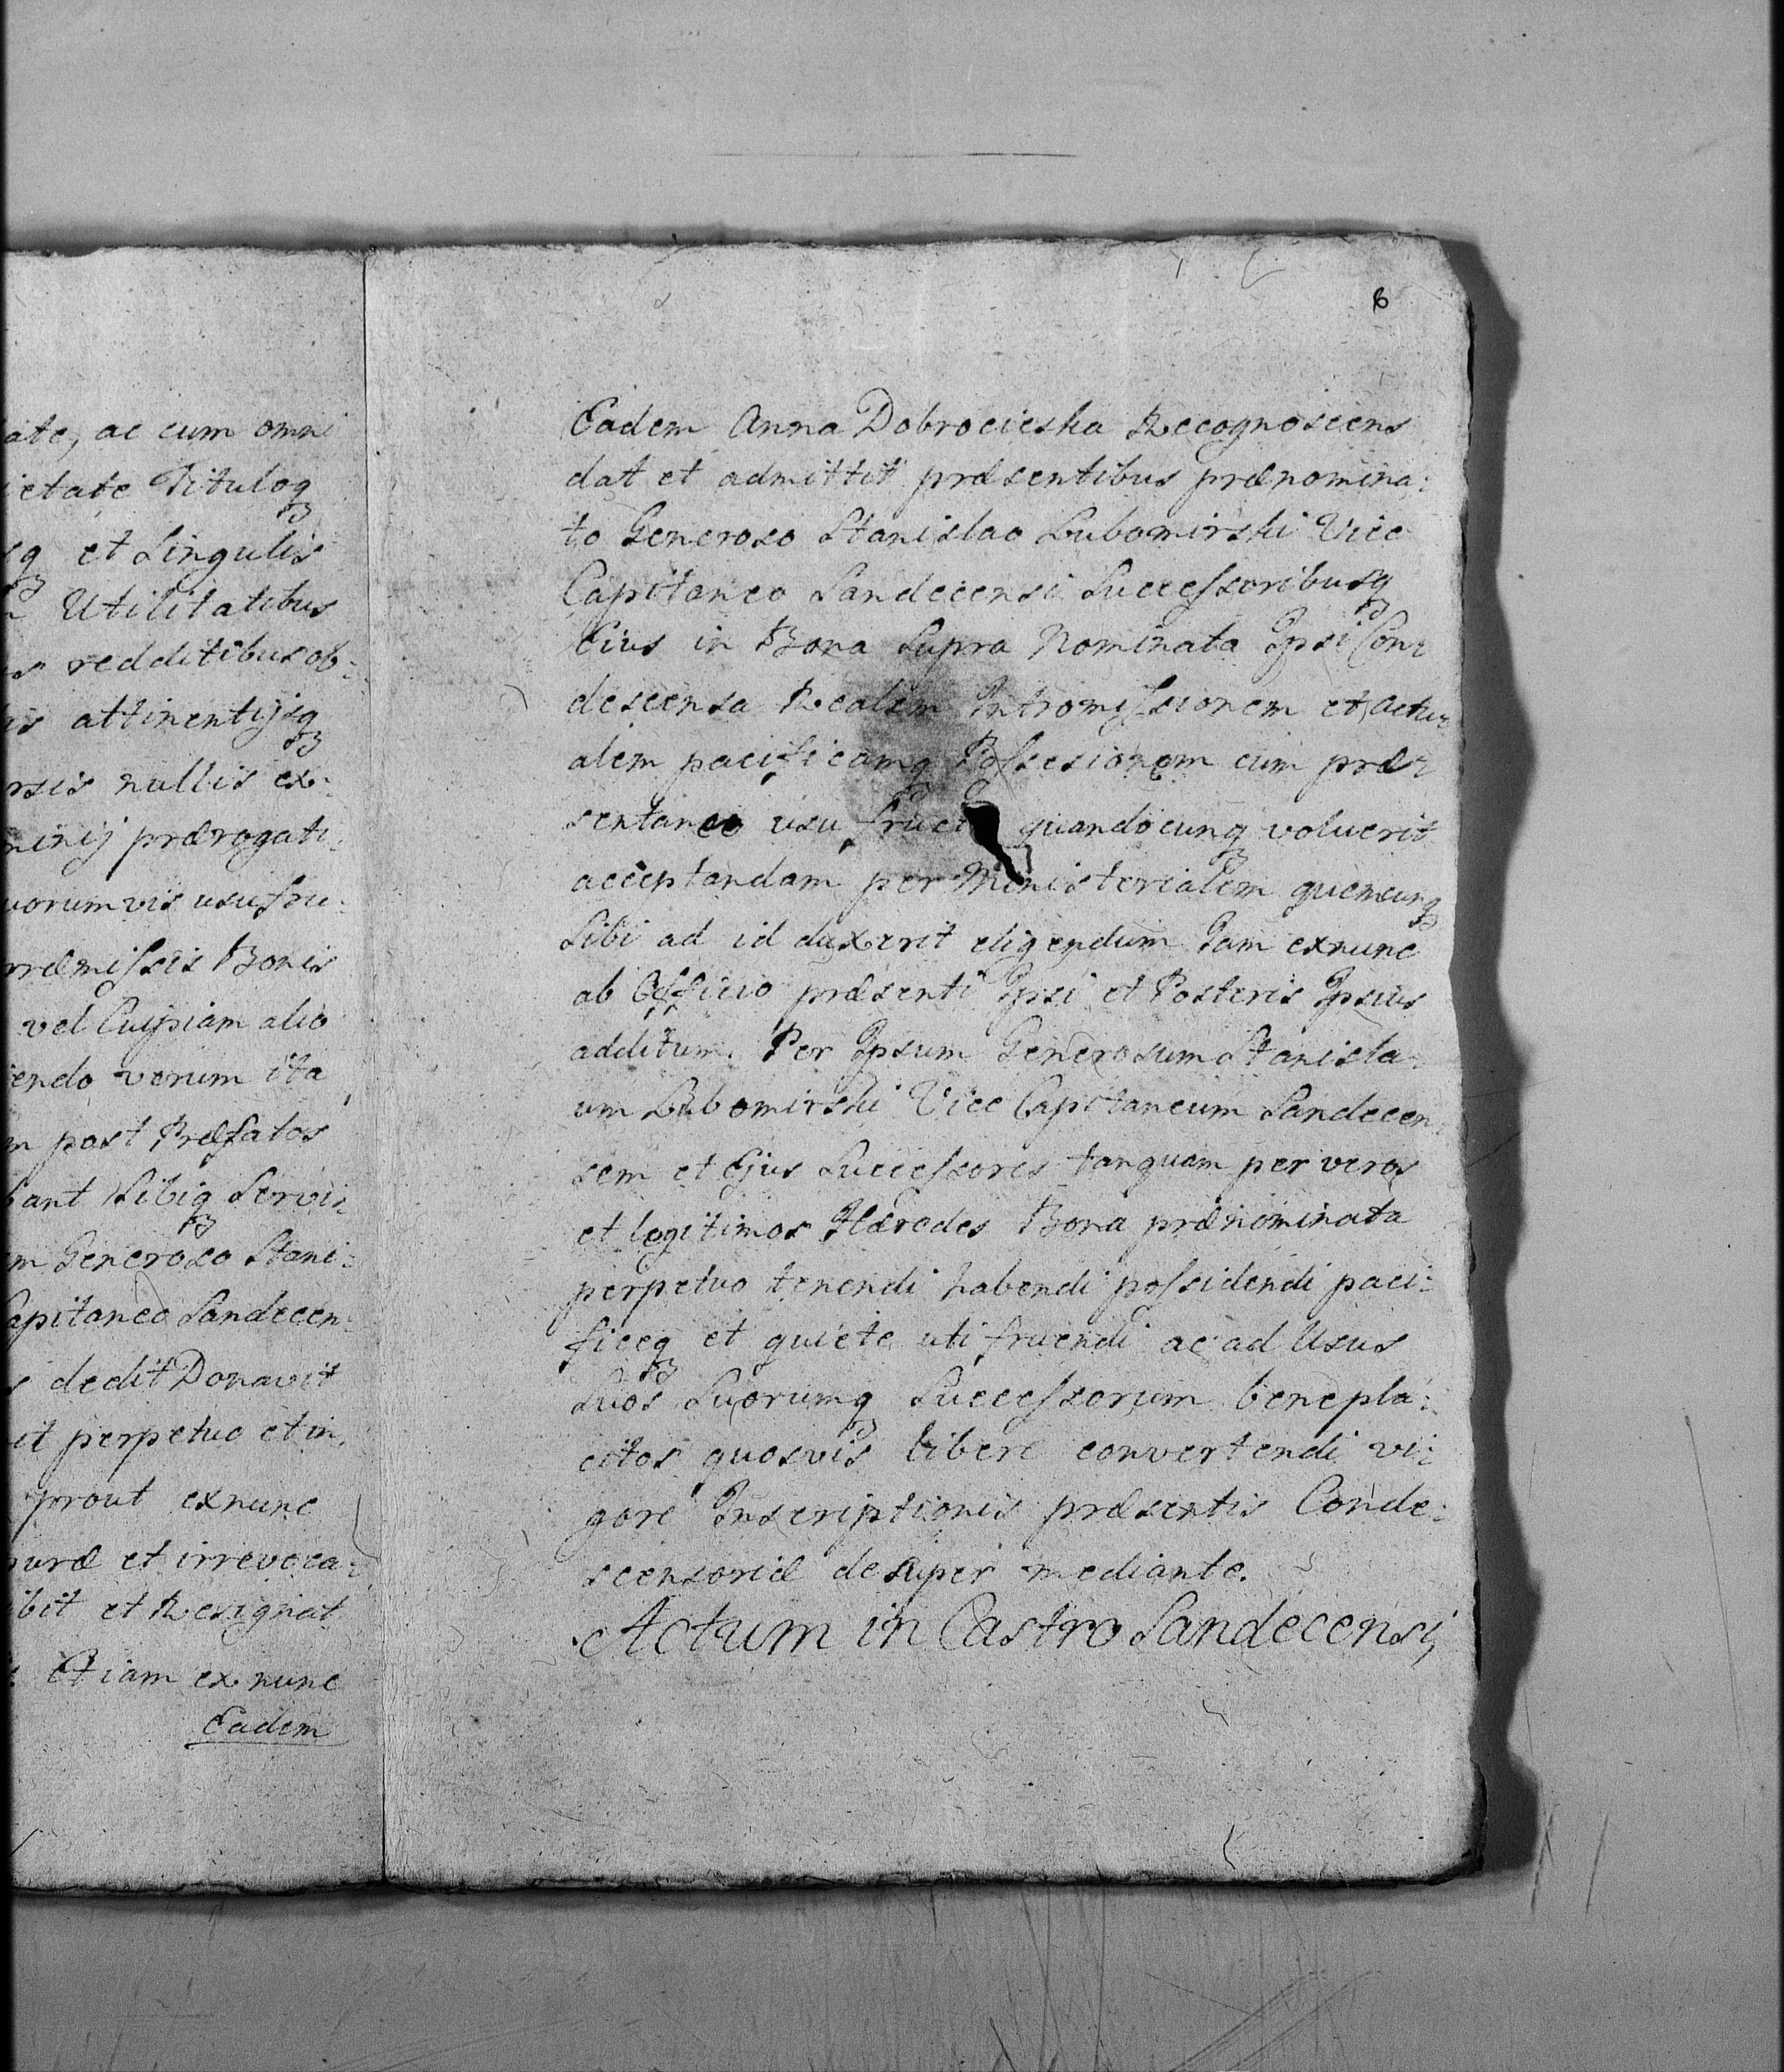 ate, ac cum omni
ietate Tituloq3
sq3 et Singulis
Utilitatibus
redditibus ob-
attinentijsq3
rsis nullis ex-
inij prærogati-
uorumvis usufru-
ræmissis Bonis
vel Cuipiam alio
endo verum ita
m post Præfatos
bant Sibiq3 Servi-
m Generoso Stani-
Capitaneo Sandecen-
s dedit Donavit
it perpetuo et in
prout exnunc
puræ et irrevoca-
ibit et Resignat
Etiam exnunc
Eadem
6
Eadem Anna Dobrocieska Recognoscens
dat et admittit præsentibus prænomina-
to Generoso Stanislao Lubomirski Vice
Capitaneo Sandecensi Successoribusq3
Eius in Bona Supra Nominata Ipsi Con-
descensa Realem Intromissionem et actu-
alem pacificamq3 Possesionem cum præ-
sentaneo usu fructu quandocunq3 voluerit
acceptandam per Ministerialem quemcunq3
Sibi ad id duxerit eligendum Jam exnunc
ab Officio præsenti Ipsi et Posteris Ipsius
additum. Per Ipsum Generosum Stanisla-
um Lubomirski Vice Capitaneum Sandecen-
sem et Ejus Successores tanquam per veros
et legitimos Hæredes Bona prænominata
perpetuo tenendi habendi possidendi paci-
ficeq3 et quiete uti fruendi ac ad Usus
Suos Suorumq3 Successorum benepla-
citos quosvis libere convertendi vi-
gore Inscriptionis præsentis Conde-
scensoriæ desuper mediante.
Actum in Castro Sandecensi,